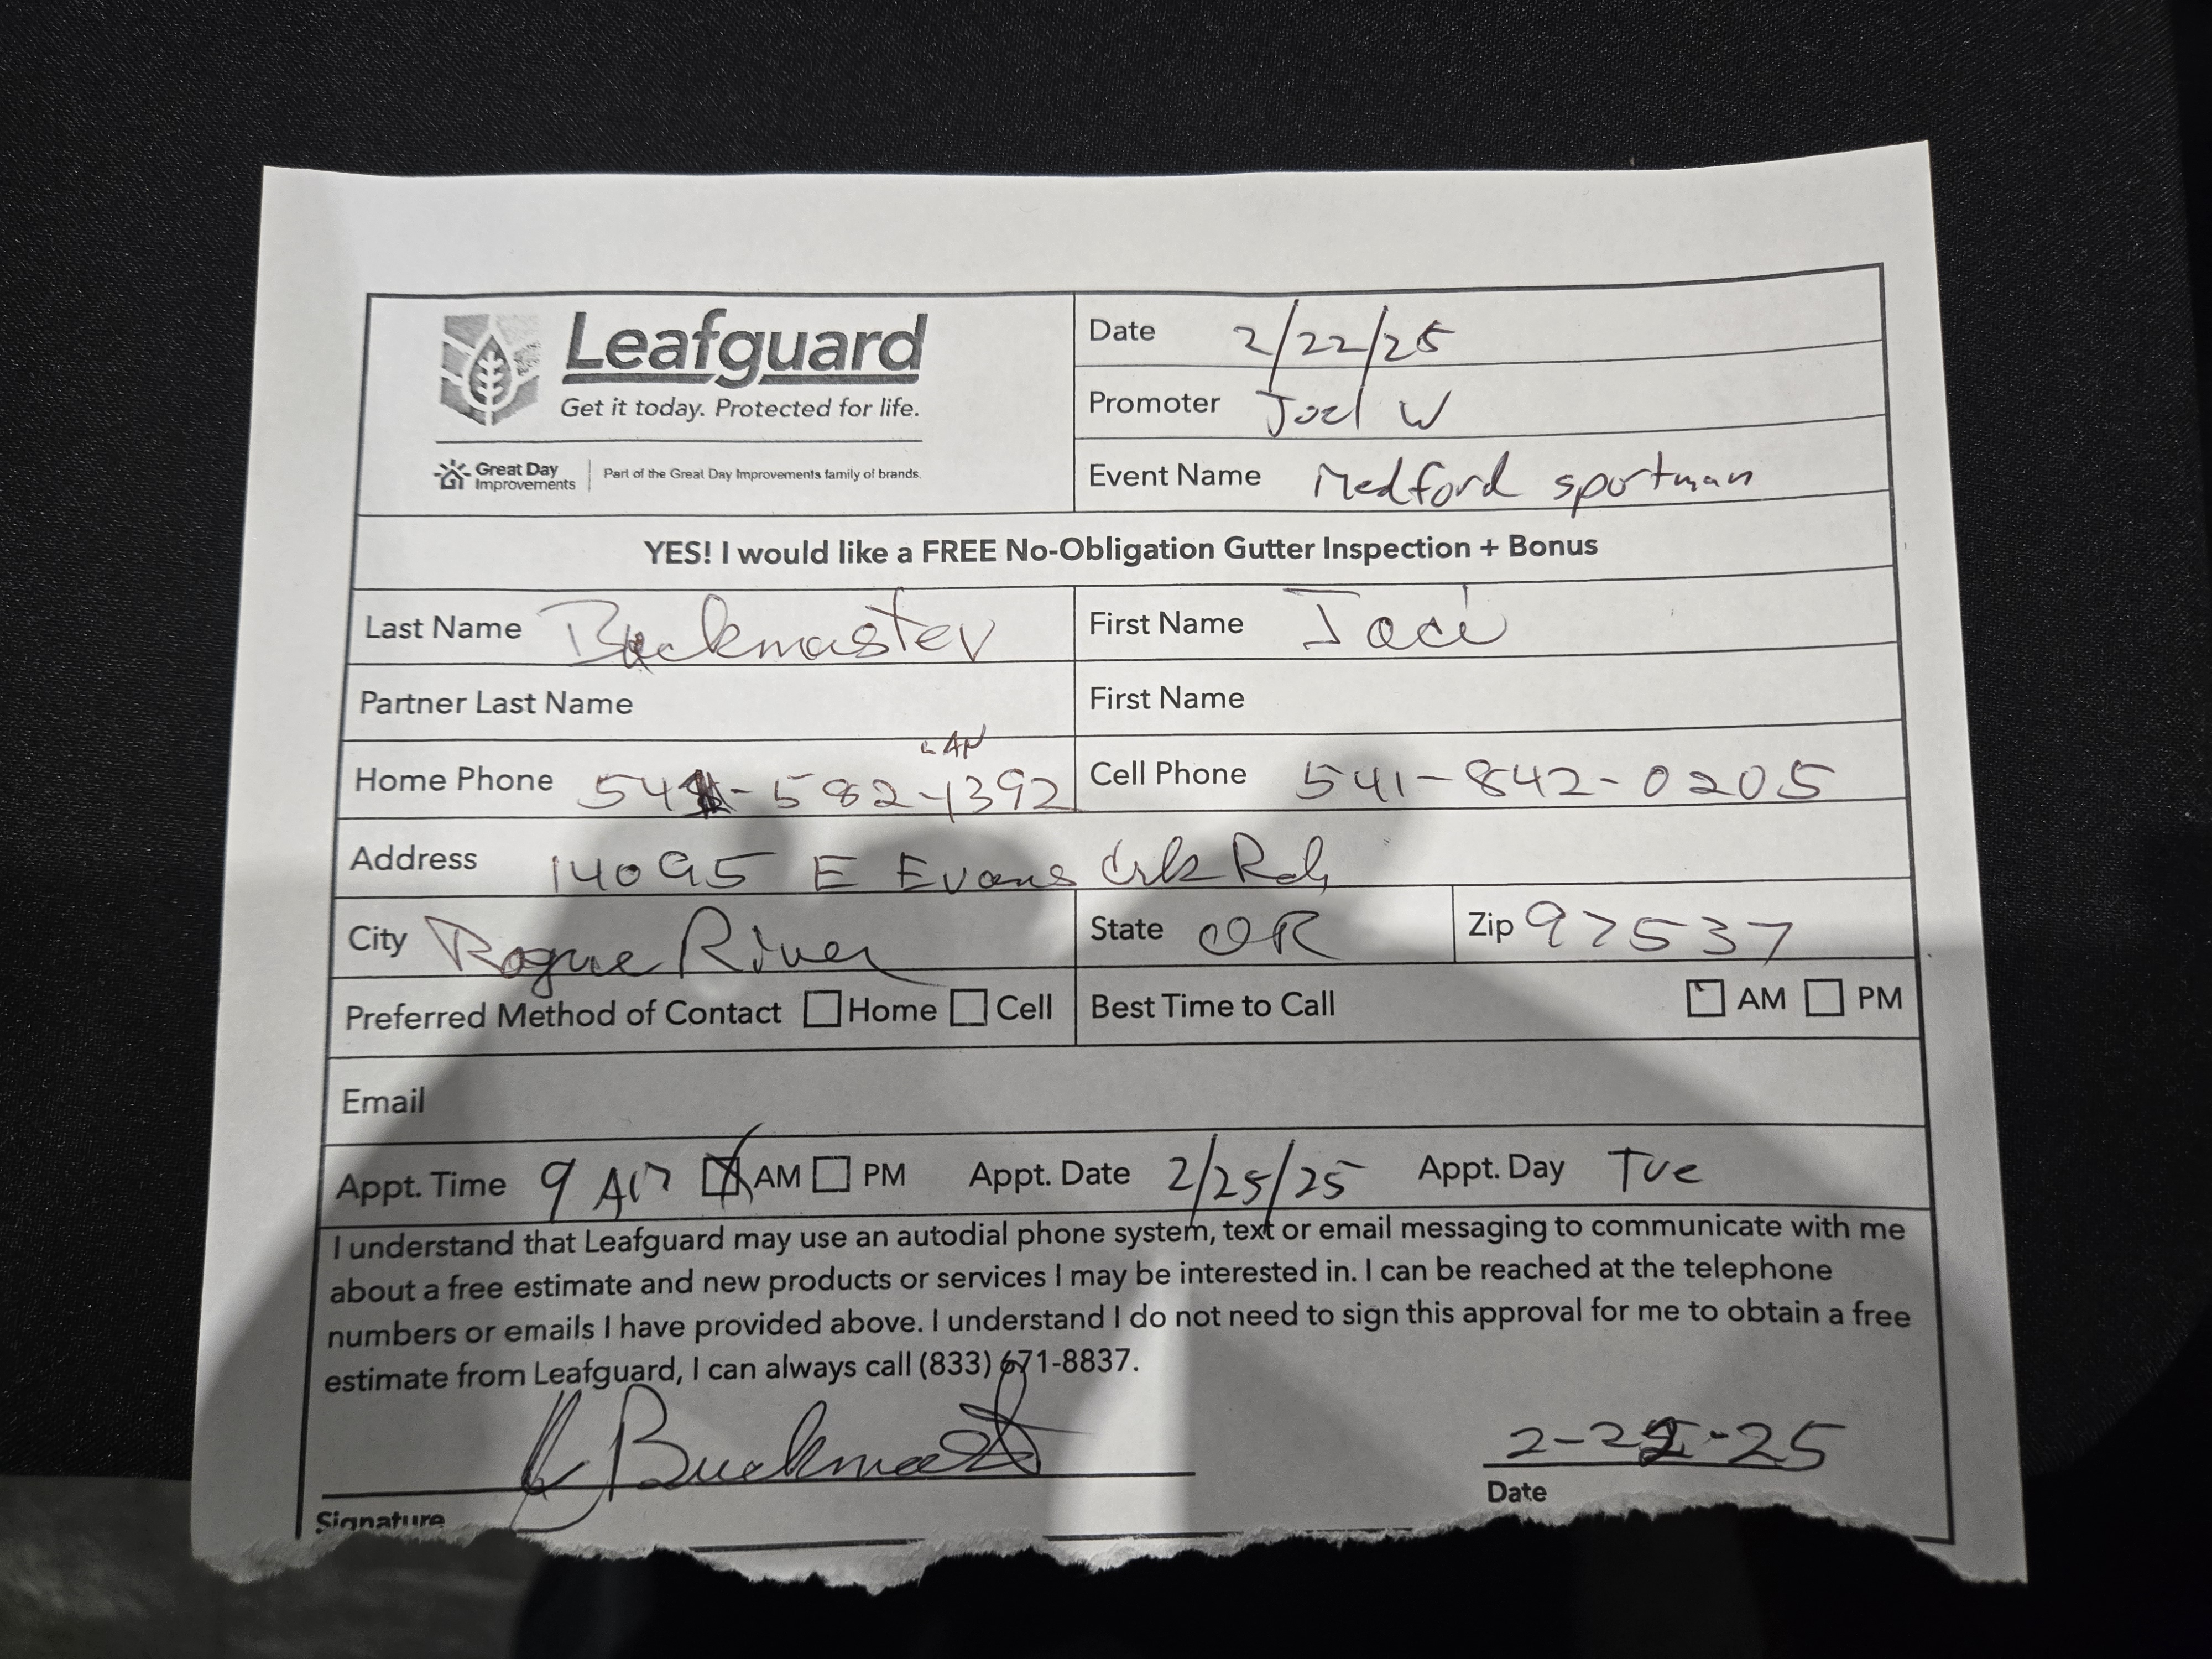 Leafguard
Get it today. Protected for life.
Great Day Improvements | Part of the Great Day Improvements family of brands.
Date 2/22/25
Promoter Joel W
Event Name Medford sportman
YES! I would like a FREE No-Obligation Gutter Inspection + Bonus
Last Name Buckmaster First Name Jaci
Partner Last Name First Name
Home Phone 541-582-1392 Cell Phone 541-842-0205
Address 14095 E Evans Crk Rd
City Rogue River State OR Zip 97537
Preferred Method of Contact Home Cell Best Time to Call AM PM
Email
Appt. Time 9 AM AM PM Appt. Date 2/25/25 Appt. Day Tue
I understand that Leafguard may use an autodial phone system, text or email messaging to communicate with me
about a free estimate and new products or services I may be interested in. I can be reached at the telephone
numbers or emails I have provided above. I understand I do not need to sign this approval for me to obtain a free
estimate from Leafguard, I can always call (833) 671-8837.
2-25-25
Signature Date